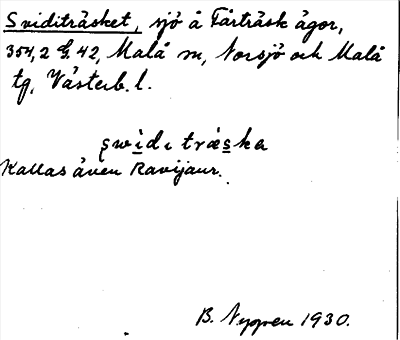 Sviditräsket, sjö å Fårträsk ägor,
354,2 G. 42, Malå sn, Norsjö och Malå
tg, Västerb. l.
swidi träska
Kallas även Ravijaur.
B. Nygren 1930.